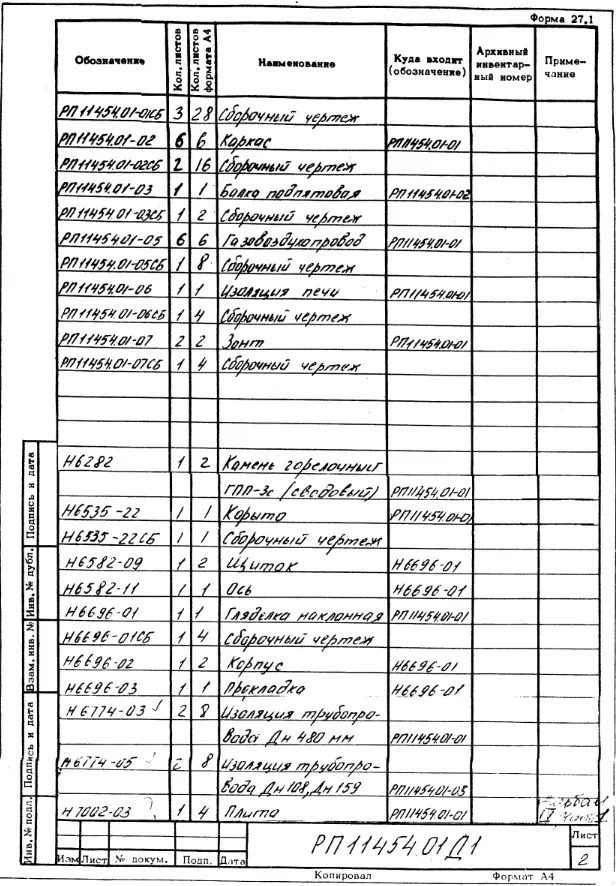 Форма 27.1
Обозначение Кол. листов Кол. листов формата А4 Наименование Куда входит (обозначение) Архивный инвентарный номер Примечание
РП11454.01-01СБ 3 28 Сборочный чертеж
РП11454.01-02 6 6 Каркас РП11454.01-01
РП11454.01-02СБ 2 16 Сборочный чертеж
РП11454.01-03 1 1 Балка подпятовая РП11454.01-02
РП11454.01-03СБ 1 2 Сборочный чертеж
РП11454.01-05 6 6 Газовоздухопровод РП11454.01-01
РП11454.01-05СБ 1 8 Сборочный чертеж
РП11454.01-06 1 1 Изоляция печи РП11454.01-01
РП11454.01-06СБ 1 4 Сборочный чертеж
РП11454.01-07 2 2 Зонт РП11454.01-01
РП11454.01-07СБ 1 4 Сборочный чертеж
Н6282 1 2 Камень горелочный
ГПП-3с (сводовый) РП11454.01-01
Н6535-22 1 1 Корыто РП11454.01-0
Н6535-22СБ 1 1 Сборочный чертеж
Н6582-09 1 2 Щиток Н6696-01
Н6582-11 1 1 Ось Н6696-01
Н6696-01 1 1 Гляделка наклонная РП11454.01-01
Н6696-01СБ 1 4 Сборочный чертеж
Н6696-02 1 2 Корпус Н6696-01
Н6696-03 1 1 Прокладка Н6696-01
Н6774-03 2 8 Изоляция трубопро-
вода Дн 480 мм РП11454.01-01
Н6774-05 2 8 Изоляция трубопро-
вода Дн 108, Дн 159 РП11454.01-05
Н7002-03 1 4 Плита РП11454.01-01
РП11454.01Д1
Лист
2
Изм Лист № докум. Подп. Дата
Копировал Формат А4
Подпись и дата
Инв. № дубл.
Взам. инв. №
Подпись и дата
Инв. № подл.